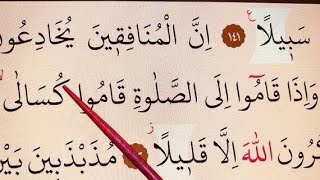 سَبِيلًا ﴿١٤١﴾ اِنَّ الْمُنَافِقِينَ يُخَادِعُونَ
وَاِذَا قَامُٓوا اِلَى الصَّلٰوةِ قَامُوا كُسَالٰى
اللّٰهَ اِلَّا قَلِيلًا مُذَبْذَبِينَ بَيْنَ